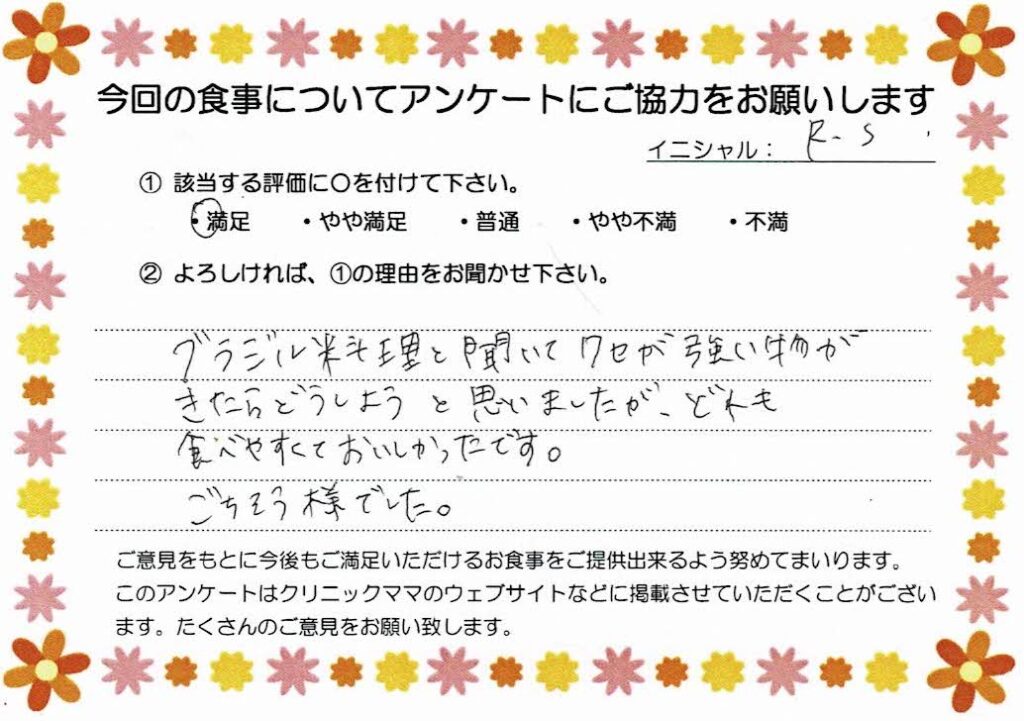 今回の食事についてアンケートにご協力をお願いします
イニシャル： R-S
① 該当する評価に〇を付けて下さい。
・満足 ・やや満足 ・普通 ・やや不満 ・不満
② よろしければ、①の理由をお聞かせ下さい。
ブラジル料理と聞いてクセが強い物が
きたらどうしようと思いましたが、どれも
食べやすくておいしかったです。
ごちそう様でした。
ご意見をもとに今後もご満足いただけるお食事をご提供出来るよう努めてまいります。
このアンケートはクリニックママのウェブサイトなどに掲載させていただくことがござい
ます。たくさんのご意見をお願い致します。